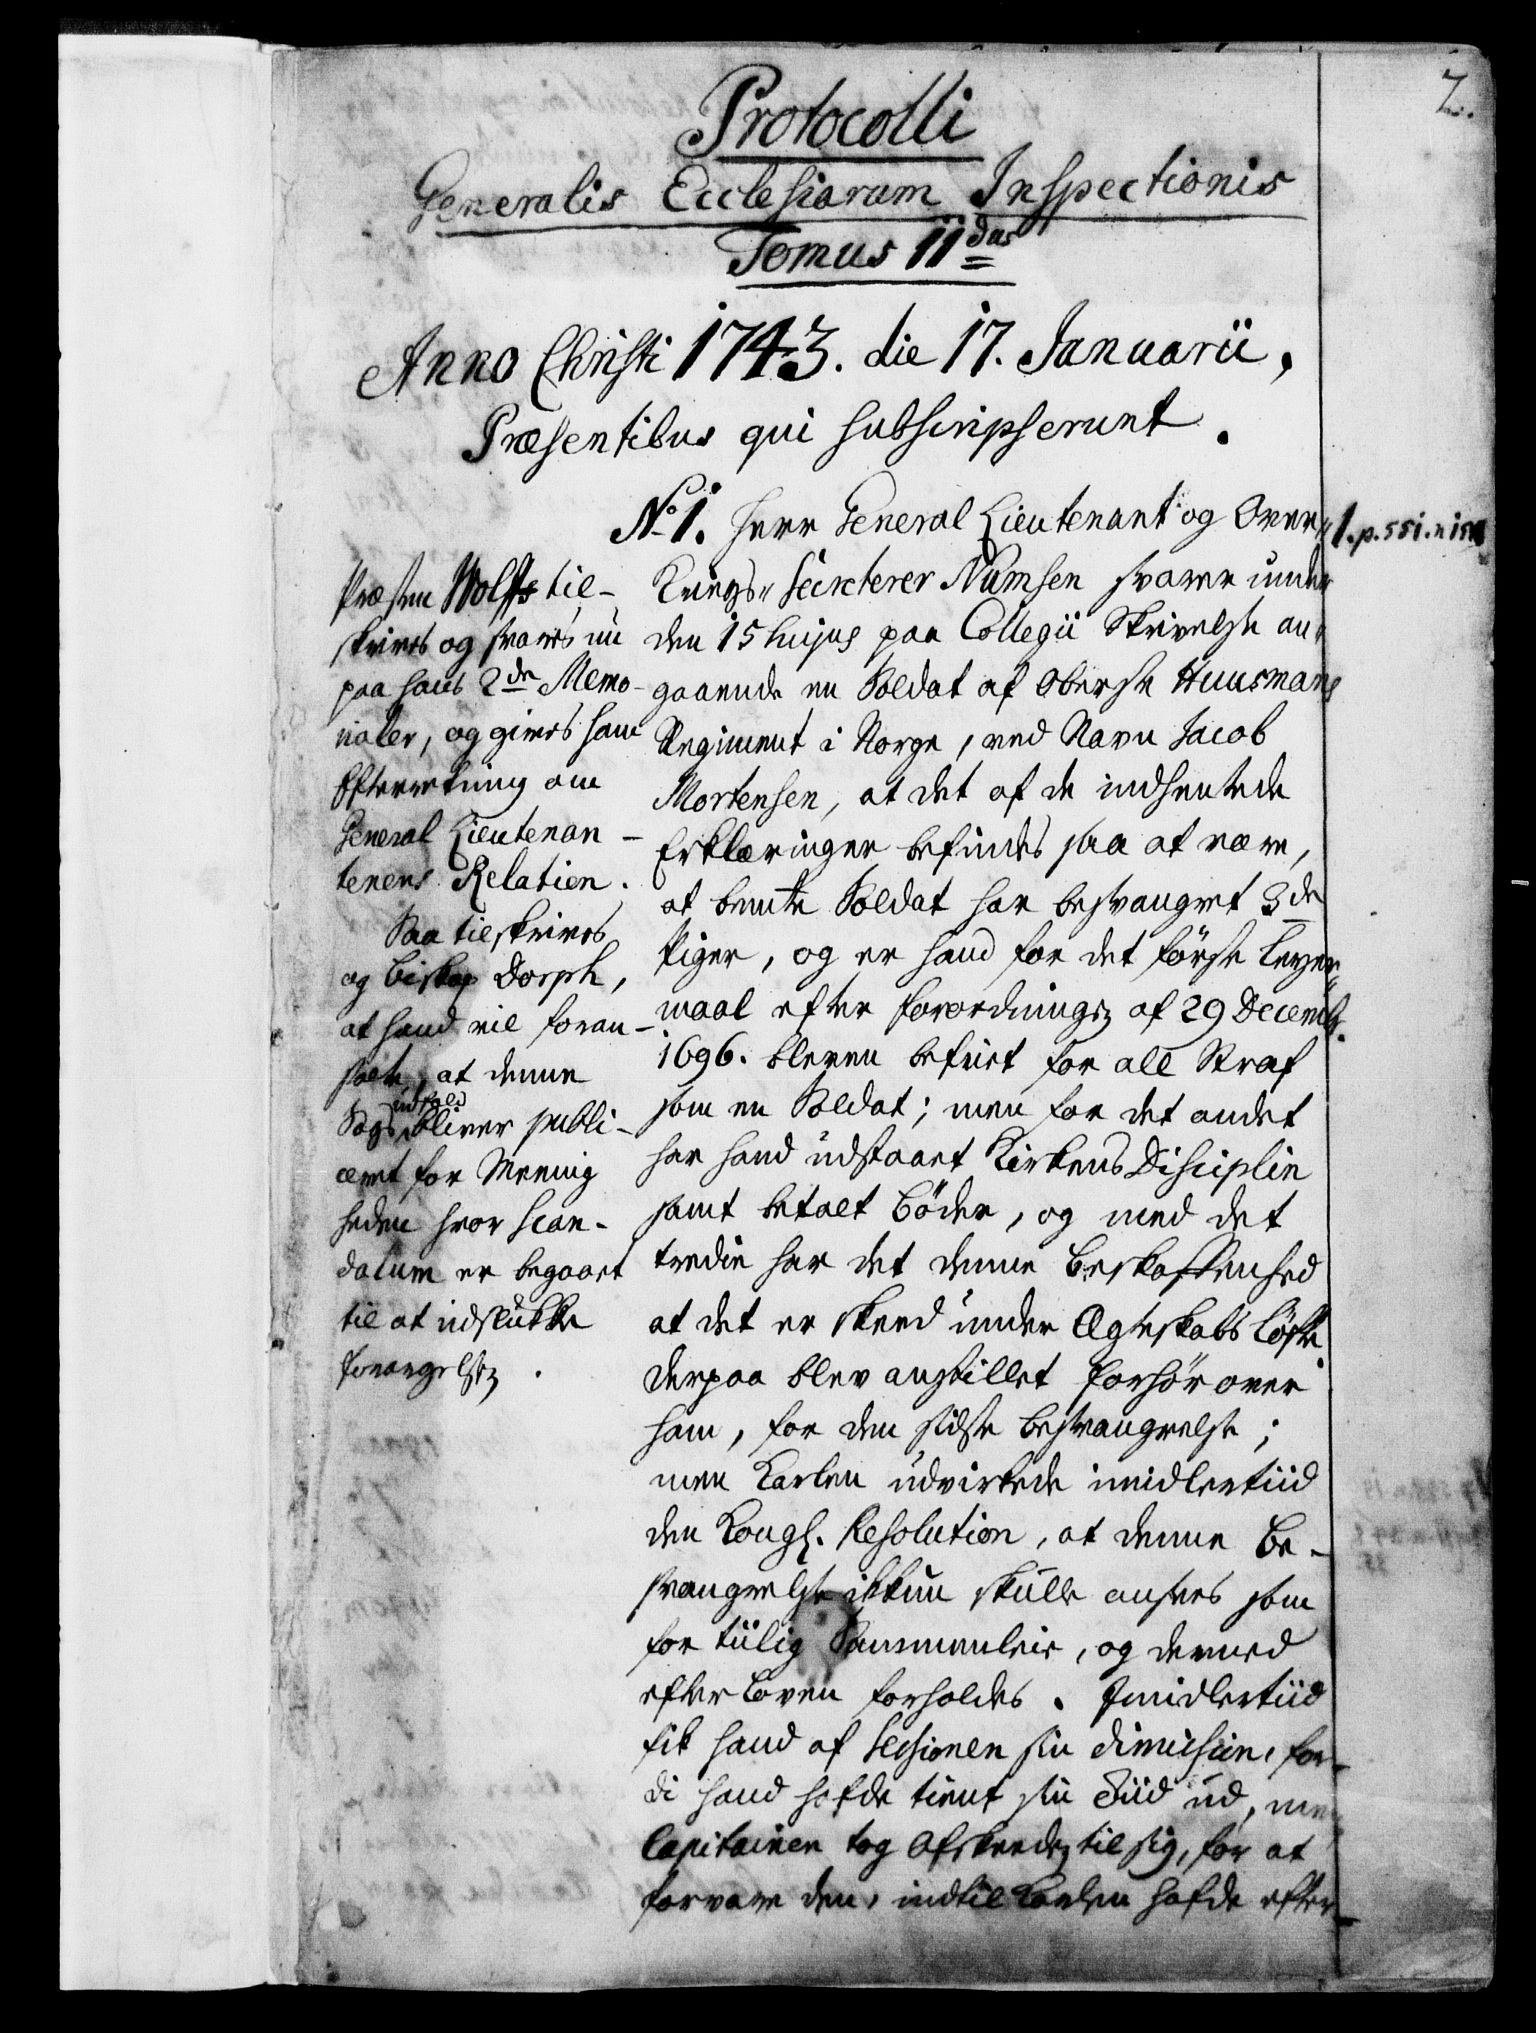 2.
Protocolli
Generalis Ecclesiarum Inspectionis
Tomus II dus
Anno Christi 1743. die 17. Januarii,
Præsentibus qui subscripserunt.
No 1. Herr General Lieutenant og Over-
Krigs-Secreterer Numsen svarer under
den 15 hujus paa Collegii Skrivelse an-
gaaende en Soldat af Oberste Huusmans
Regiment i Norge, ved Navn Jacob
Mortensen, at det af de indhentede
Erklæringer befindes saa at være,
at bemte Soldat har besvangret 3de
Piger, og er hand for det förste Leyer-
maal efter Forordningen af 29 Decembr.
1696. bleven befriet for all Straf
som en Soldat; men for det andet
har hand udstaaet Kirkens Disciplin
samt betalt Böder, og med det
tredie har det denne Beskaffenhed
at det er skeed under Ægteskabs Löfte.
Derpaa blev anstillet Forhör over
ham, for den sidste Besvangrelse;
men Karlen udvirkede imidlertiid
den Kongl. Resolution, at denne Be-
svangrelse ikkun skulle ansees som
for tiilig Sammenleie, og dermed
efter Loven forholdes. Imidlertiid
fik hand af Sessionen sin Dimission, for-
di hand hafde tient sin Tiid ud, men
Capitainen tog Afskeeden til sig, for at
forvare den, indtil Karlen hafde efter-
1. p. 551. n 150
Præsten Wolff til-
skrives og svares nu
paa hans 2de Memo-
rialer, og gives ham
Efterretning om
General Lieutenan-
tenens Relation.
Saa tilskrives
og Biskop Dorph,
at hand vil foran-
stalte, at denne
Sags udfald bliver publi-
ceret for Menig
heden hvor Scan-
dalum er begaaet
til at udslukke
Forargelsen.